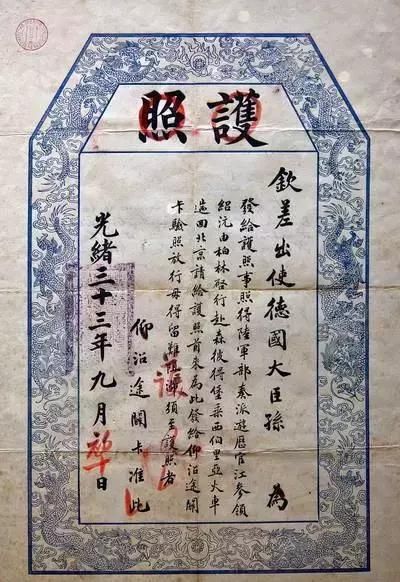 護照
欽差出使德國大臣孫 為
發給護照事照得陸軍部奏派遊歷官江參領
紹沅由柏林啓行赴森彼得堡乘西伯里亞火車
遄回北京請給護照前來為此發給仰沿途關
卡驗照放行毋得留難阻滯須至護照者
仰沿途關卡准此
光緒三十三年九月日